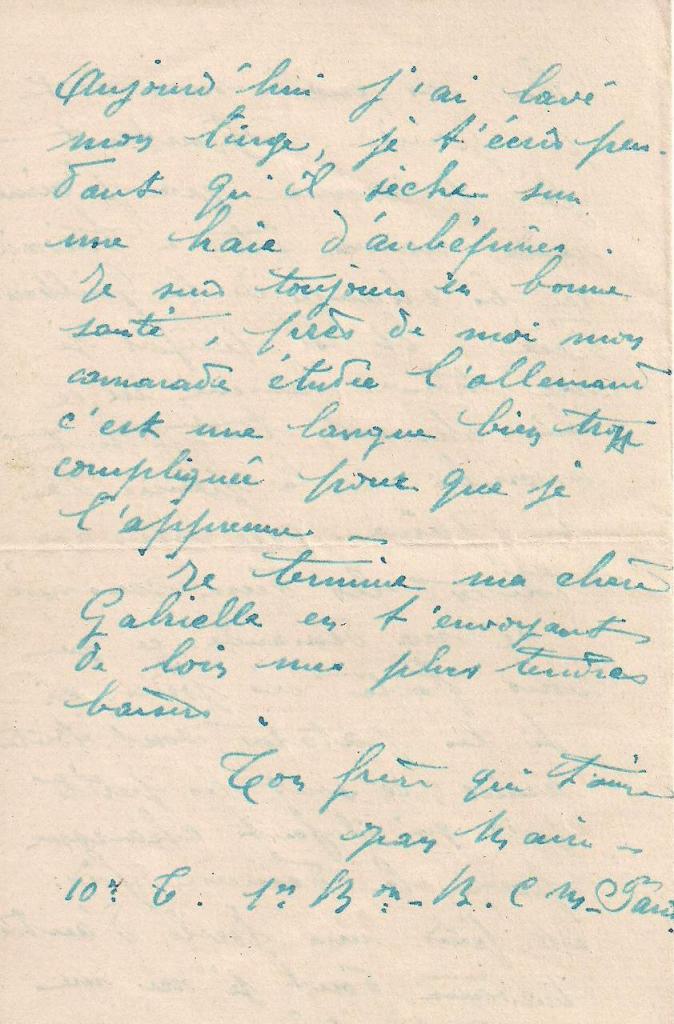 Aujourd'hui j'ai lavé
mon linge, je t'écris pen-
dant qu'il sèche sur
une haie d'aubépines.
Je suis toujours en bonne
santé, près de moi mon
camarade étudie l'allemand
c'est une langue bien trop
compliquée pour que je
l'apprenne –
Je termine ma chère
Gabrielle en t'envoyant
de loin mes plus tendres
baisers.
Ton frère qui t'aime
10e C. 1er Bon – B. C. M – Paris